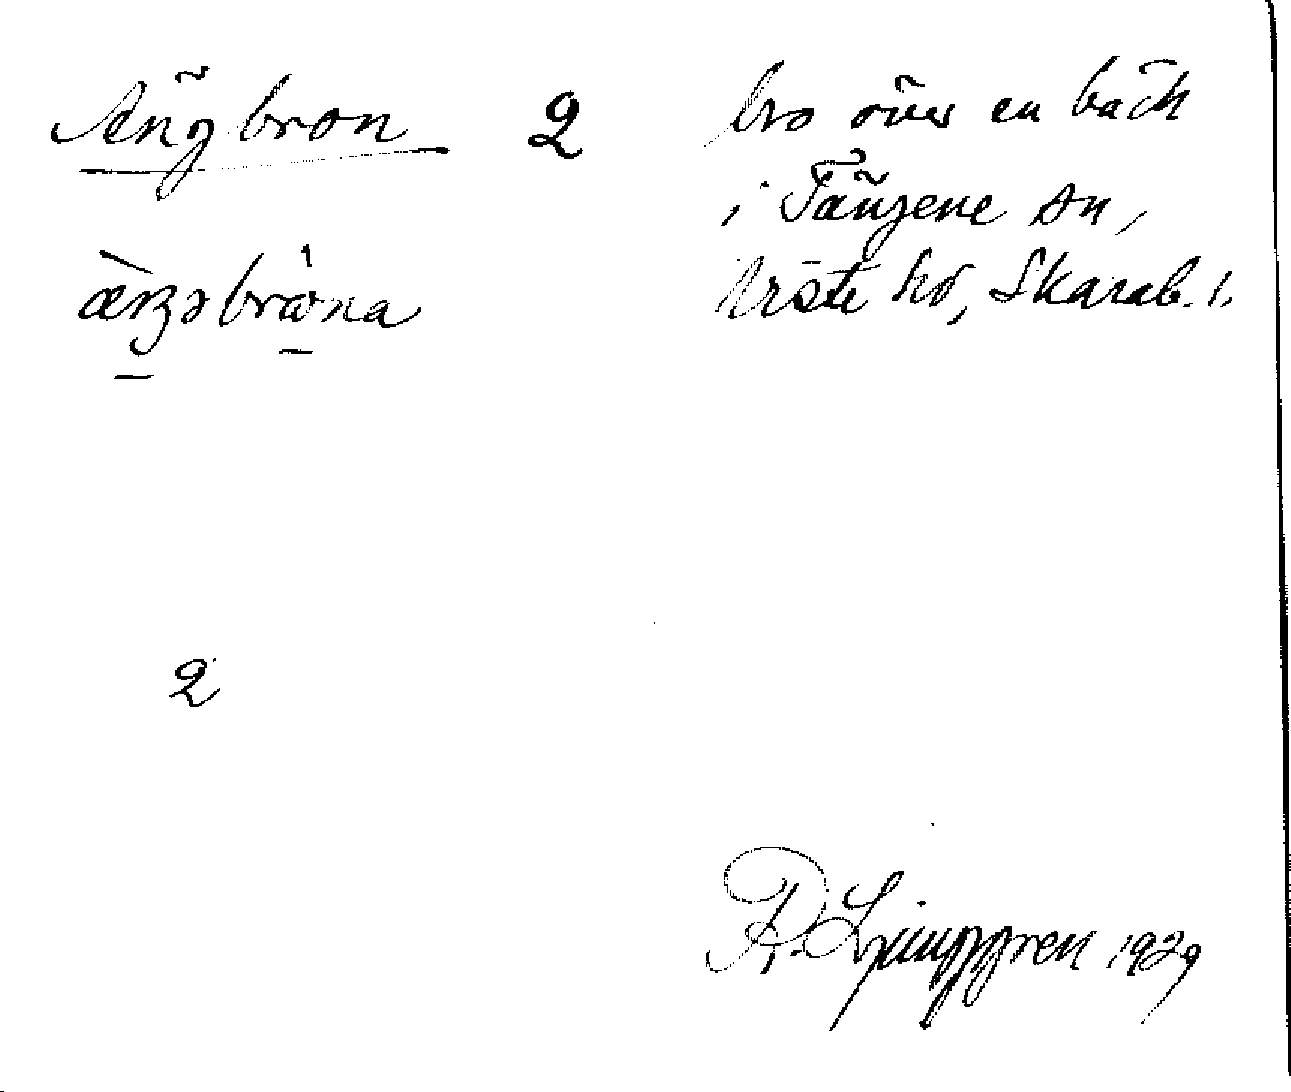 Ängbron 2
bro över en bäck
i Tängene sn,
Viste hd, Skarab. l.
2
R. Ljunggren 1929